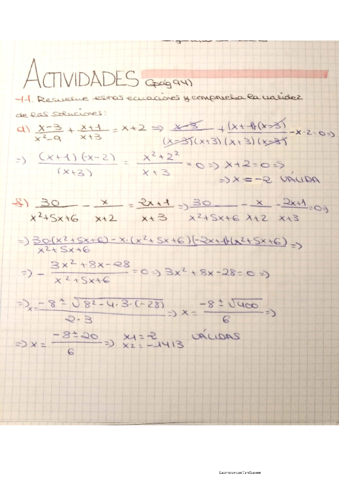 ACTIVIDADES (pág 94)
11. Resuelve estas ecuaciones y comprueba la validez
de las soluciones:
a) (x-3)/(x²-9) + (x+1)/(x+3) = x+2 => (x-3)/((x-3)(x+3)) + ((x+1)(x-3))/((x+3)(x-3)) - x-2=0 =>
=> ((x+1)(x-2))/(x+3) = (x²+2²)/(x+3) =0 => x+2=0 =>
=> x=-2 VÁLIDA
B) 30/(x²+5x+6) - x/(x+2) = (2x+1)/(x+3) => 30/(x²+5x+6) - x/(x+2) - (2x+1)/(x+3) =0 =>
=> (30(x²+5x+6)-x·(x²+5x+6)(-2x+1)(x²+5x+6))/(x²+5x+6) =>
=> - (3x²+8x-28)/(x²+5x+6) =0 => 3x²+8x-28=0 =>
=> x= (-8±√(8²-4·3·(-28)))/(2·3) => x= (-8±√400)/6 =>
=> x= (-8±20)/6 => x1=-2 VÁLIDAS
x2=-14/3